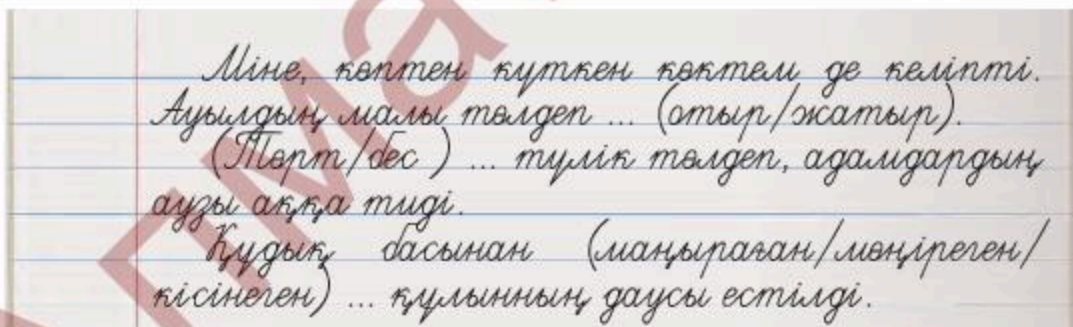 Міне, көптен күткен көктем де келіпті.
Ауылдың малы төлдеп ... (отыр/жатыр).
(Төрт/бес ) ... түлік төлдеп, адамдардың
аузы аққа тиді.
Құдық басынан (маңыраған/мөңіреген/
кісінеген) ... құлынның даусы естілді.